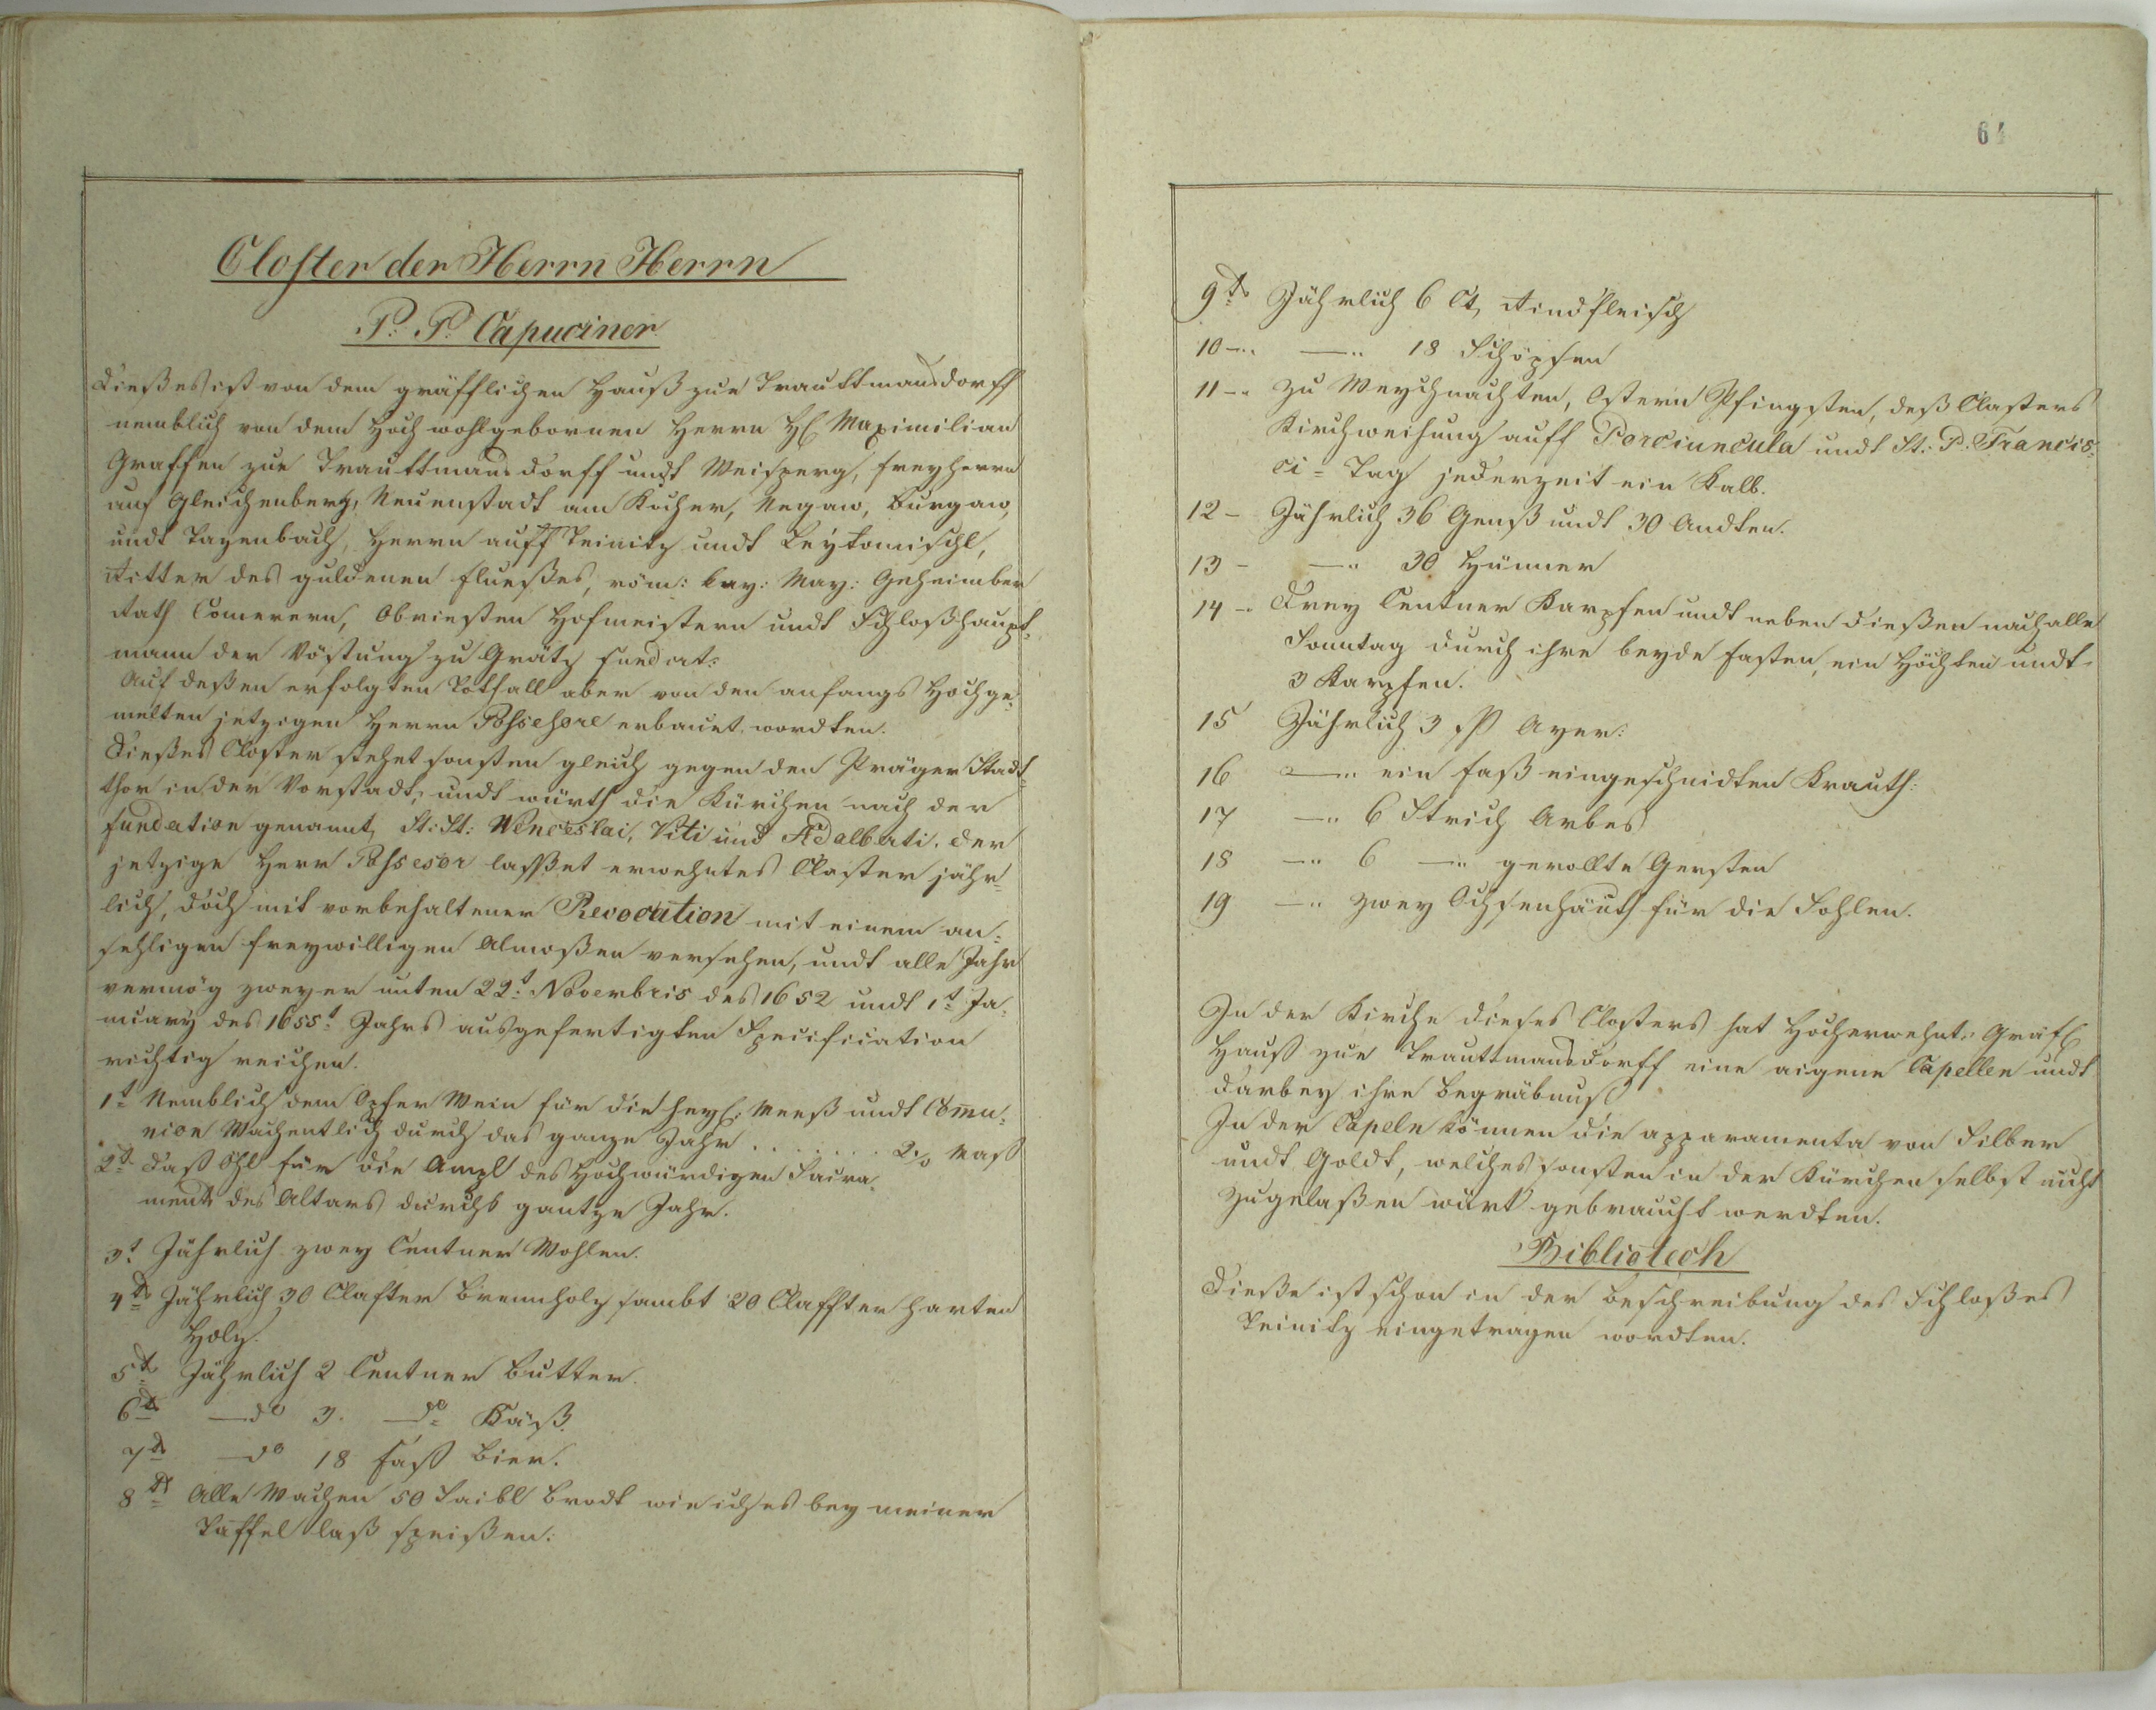 Closter der Herrn Herrn
P. P. Capuciner
Dießes ist von dem gräfflichen Hauß zue Trauttmansdorff
nemblich von dem Hoch wohlgebornen Herrn H: Maximilian
Graffen zue Trauttmansdorff undt Weinsperg, freyherrn
auf Gleichenberg, Neuenstadt am Kocher, Negaw, Burgaw,
undt Tazenbach, Herrn auff Teinitz undt Leytomischl,
Ritter des guldenen fluesses, röm: kay: May: Geheimber
Rath Comerern, Obristen Hofmeistern undt Schloßhaupt-
mann der Vöstung zu Grätz fundat:
Auf deßen erfolgten Todtfall aber von den anfangs Hochge-
melten jetzigen Herrn Possessore erbauet wordten.
Dießes Closter stehet sonsten gleich gegen den Prager Stadt-
thor in der Vorstadt, undt würth die Kürchen nach der
fundation genannt, St: St: Wenceslai, Viti und Adalberti. der
jetzige Herr Possesor lasset erwehntes Closter jähr-
lich, doch mit vorbehaltener Revocation mit einem an-
sehligen freywilligen Almoßen versehen, undt alle Jahr
vermög zweyer unten 22t: Novembris des 1652 undt 1t Ja-
nuary des 1655t Jahrs ausgefertigten Specification
richtig reichen.
1t Nemblich dem Opfer Wein für die heyl: Meeß undt Com̅u-
nion Wachentlich durch das ganze Jahr . . . . . . . 2 Maß
2t Daß Öhl für die Ampl des Hochwürdigen Sacra-
ments des Altars durchs gantze Jahr.
3t Jährlich zwey Centner Wohlen.
4to Jährlich 30 Clafter Brennholz sambt 20 Claffter harten
Holz.
5to Jährlich 2 Centner Butter.
6to —do 3. —do Käß.
7to —do 18 Faß Bier.
8to Alle Wachen 50 Laibl Brodt wie ich es bey meiner
Taffel laß speißen:
64
9to Jährlich 6 Ct, Rindfleisch
10 -.. —.. 18 Schöpsen
11 -.. Zu Weychnachten, Ostern Pfingsten, deß Closters
Kirchweihung auff Porciuncula undt St: P. Francis-
ci - Tag jederzeit ein Kalb.
12 - Jährlich 36 Genß undt 30 Andten.
13 - —.. 30 Hünner
14 -. Drey Centner Karpfen undt neben dießen noch alle
Sonntag durch ihre beyde Fasten, ein Höchten undt
3 Karpfen.
15 Jährlich 3 ß Ayer:
16 —.. ein Faß eingeschnidten Krauth:
17 —.. 6 Strich Arbes
18 —.. 6 —.. gerollte Gersten
19 —.. zwey Ochsenhäuth für die Sohlen.
In der Kirche dieses Closters hat Hocherwehnt: Gräfl
Hauß zue Trauttmansdorff eine aigene Capellen undt
darbey ihre Begräbnuß
In der Capeln können die apparamenta von Silber
undt Goldt, welches sonsten in der Kürchen selbst nicht
zugelaßen würt gebraucht werdten.
Bibliotech
Dieße ist schon in der Beschreibung des Schloßes
Teinitz eingetragen wordten.